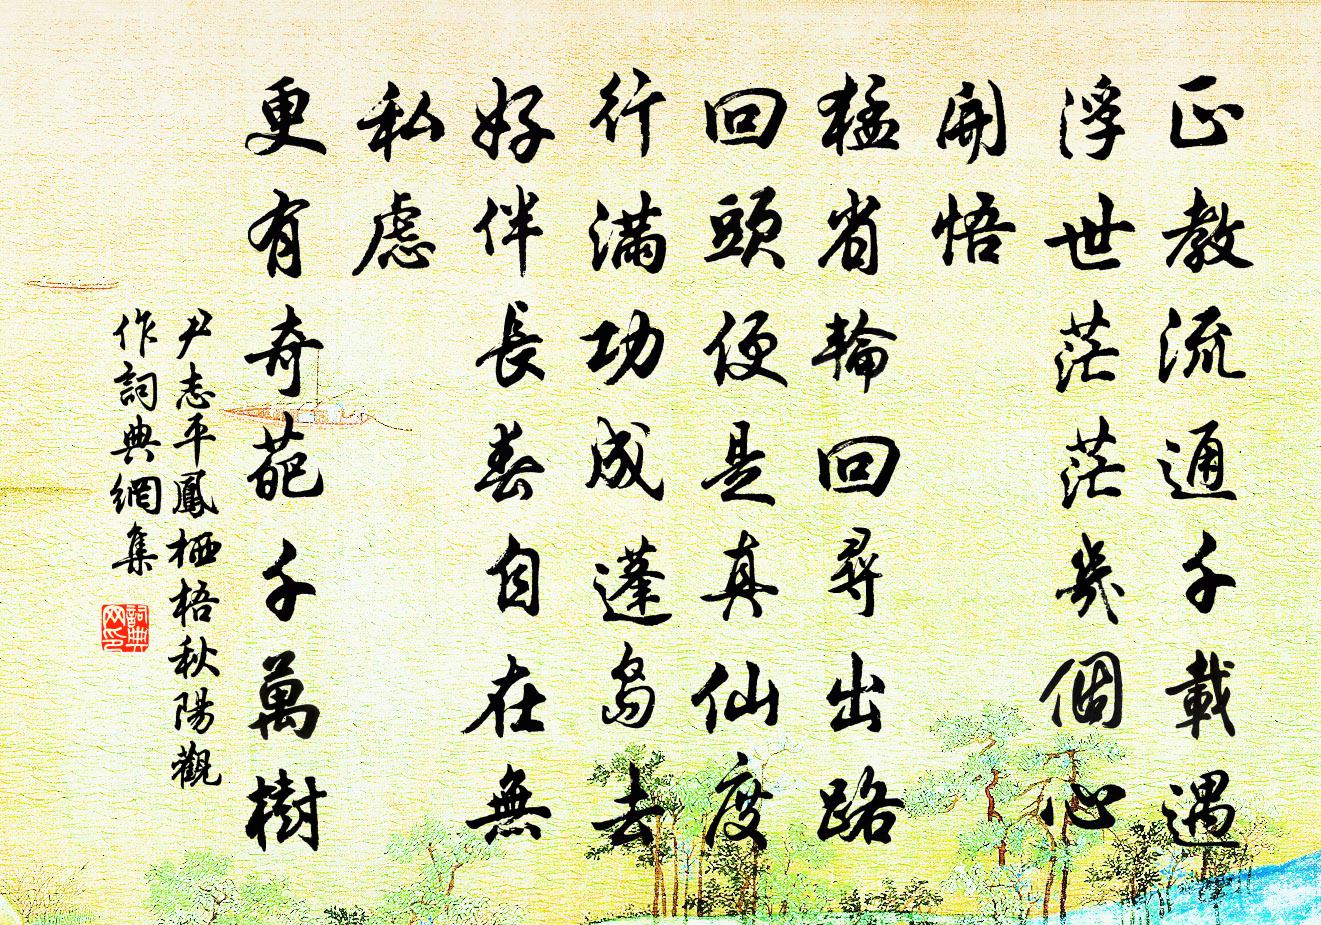 正教流通千載遇
浮世茫茫幾個心
開悟
猛省輪回尋出路
回頭便是真仙度
行滿功成蓬島去
好伴長春自在無
私慮
更有奇葩千萬樹
尹志平鳳栖梧秋陽觀
作詞典網集
詞典
网印